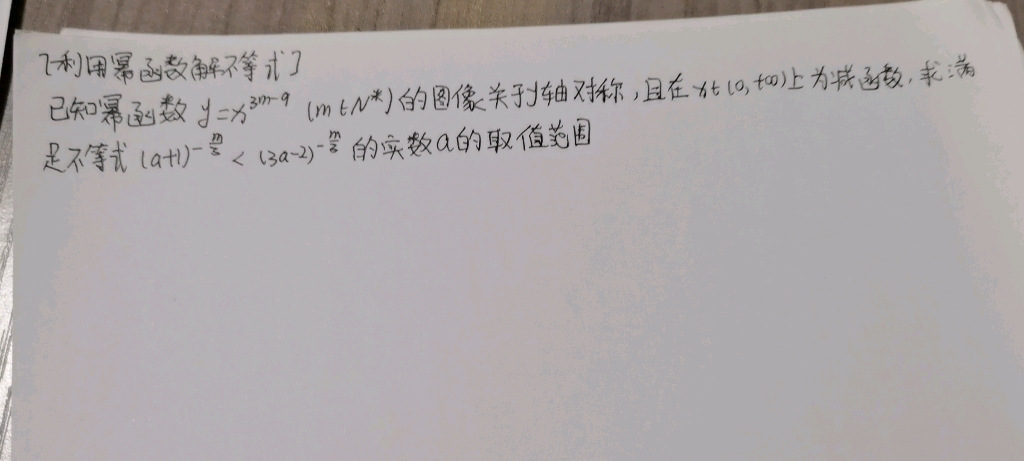 [利用幂函数解不等式]
已知幂函数 y=x^{3m-9} (m∈N*)的图像关于y轴对称,且在x∈(0,+∞)上为减函数,求满
足不等式 (a+1)^{-\frac{m}{3}} < (3a-2)^{-\frac{m}{3}} 的实数a的取值范围